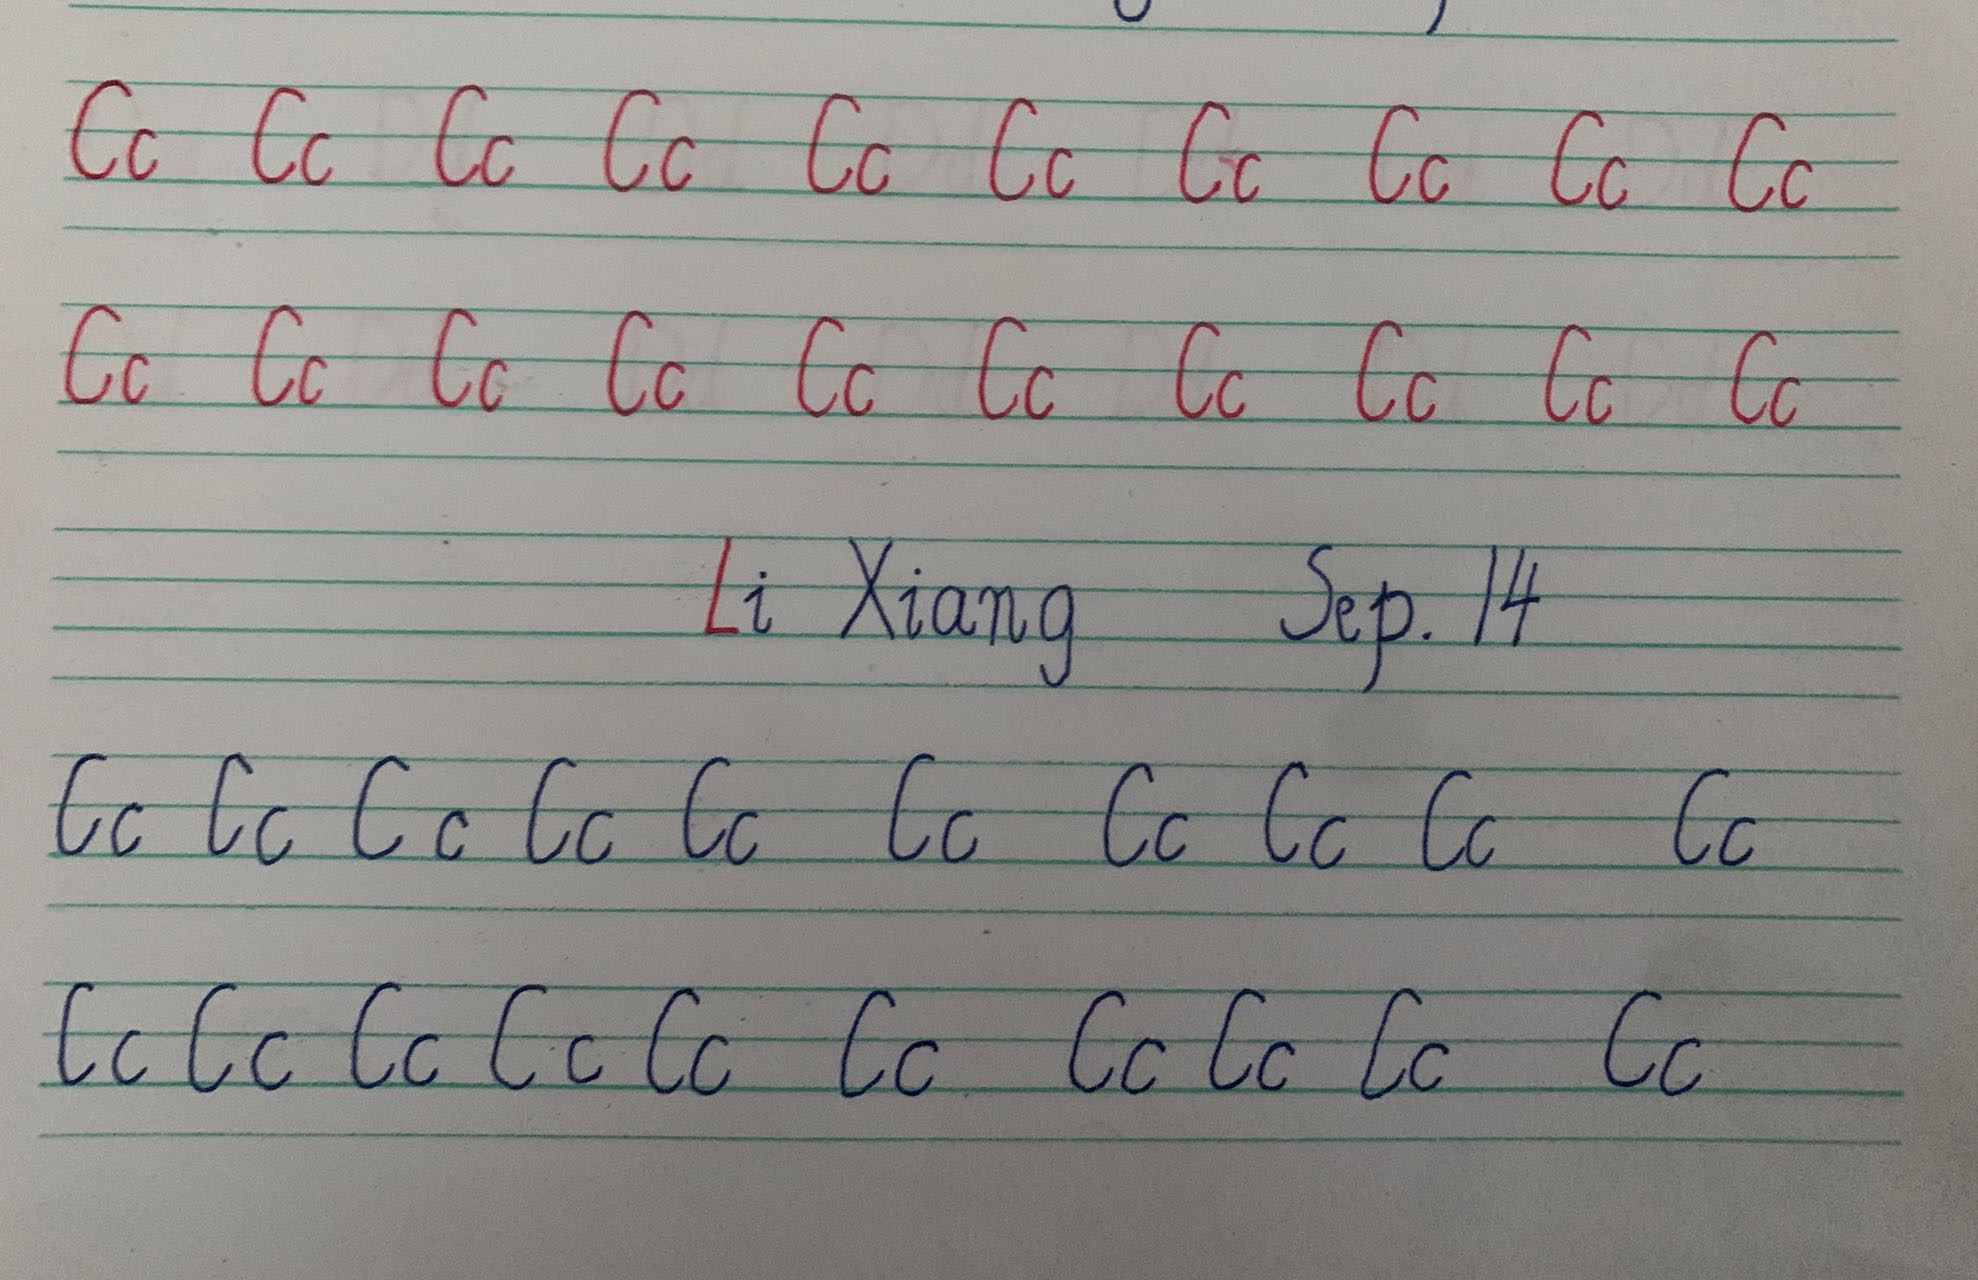 Cc Cc Cc Cc Cc Cc Cc Cc Cc Cc
Cc Cc Cc Cc Cc Cc Cc Cc Cc Cc
Li Xiang Sep. 14
Cc Cc Cc Cc Cc Cc Cc Cc Cc Cc
Cc Cc Cc Cc Cc Cc Cc Cc Cc Cc